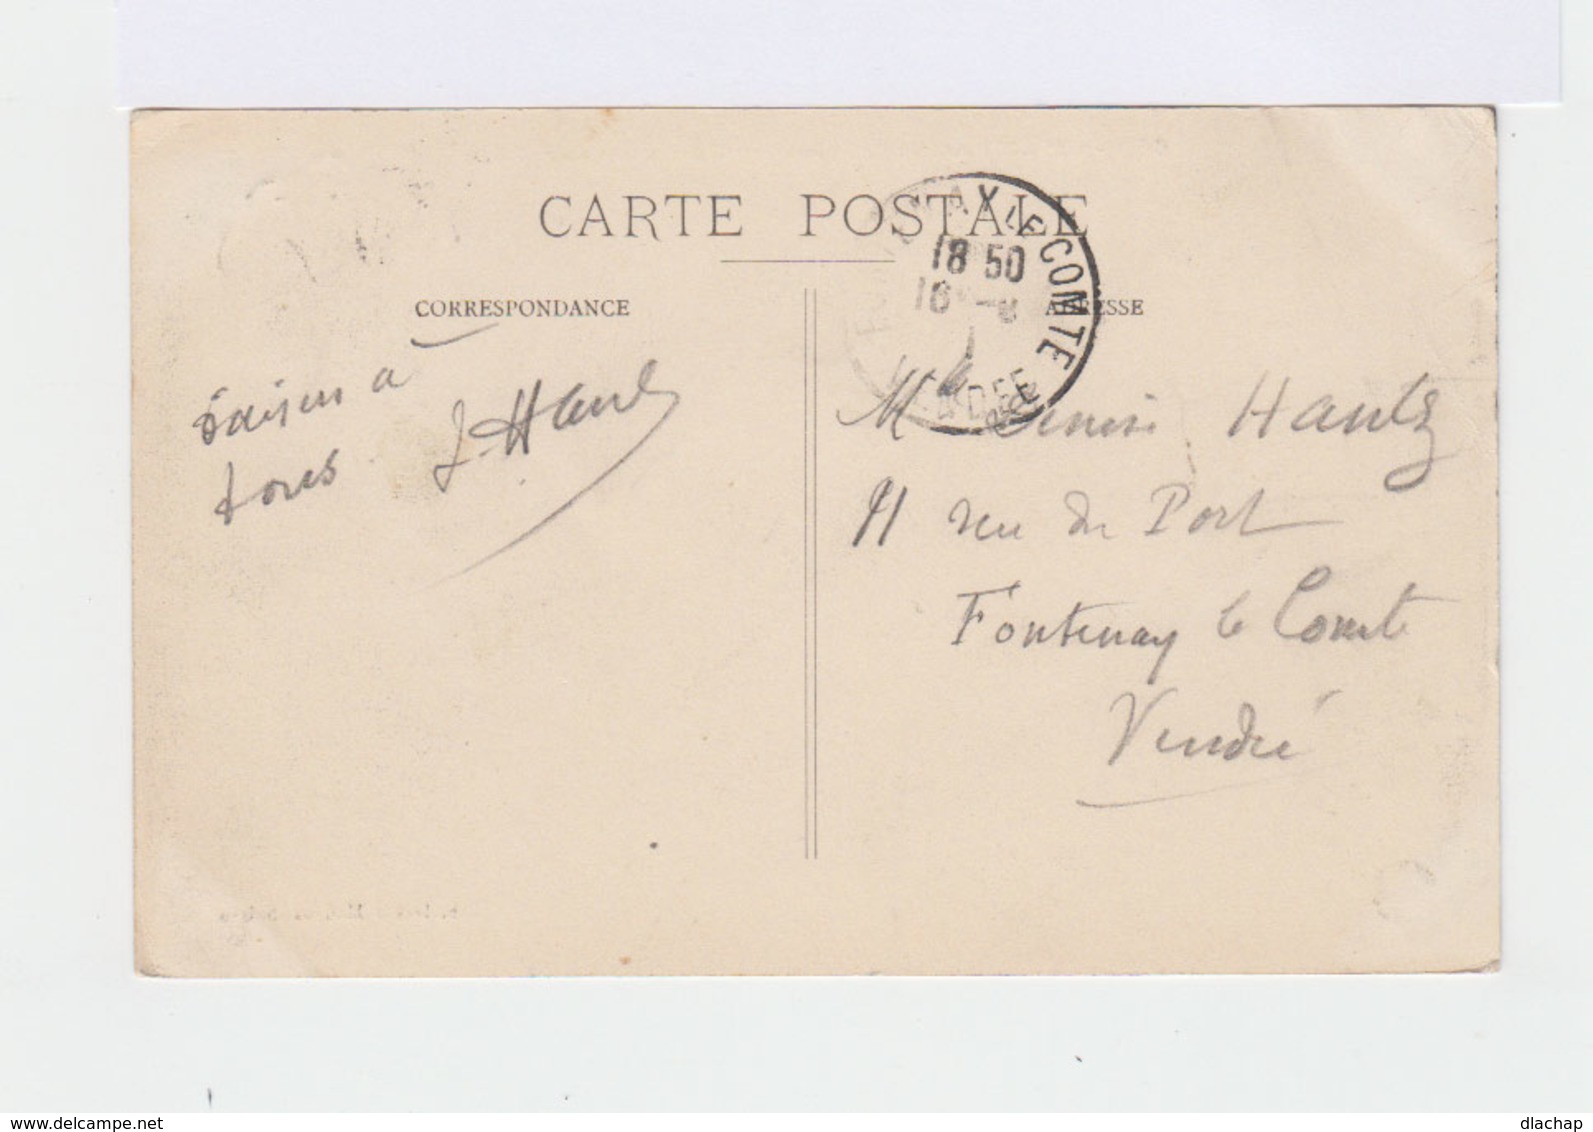 CARTE POSTALE
CORRESPONDANCE
ADRESSE
LE COMTE
18 50
Baisers à
tous J. Hault
M Denise Hault
11 rue du Port
Fontenay le Comte
Vendée
www.delcampe.net
dlachap